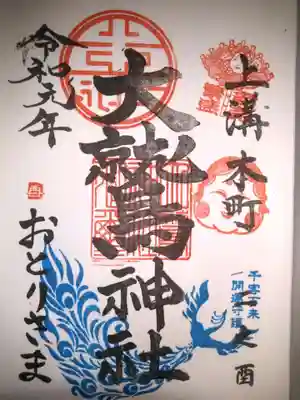 上溝本町
之酉
大鷲神社
令和元年
おとりさま
酉
千客万来
開運守護